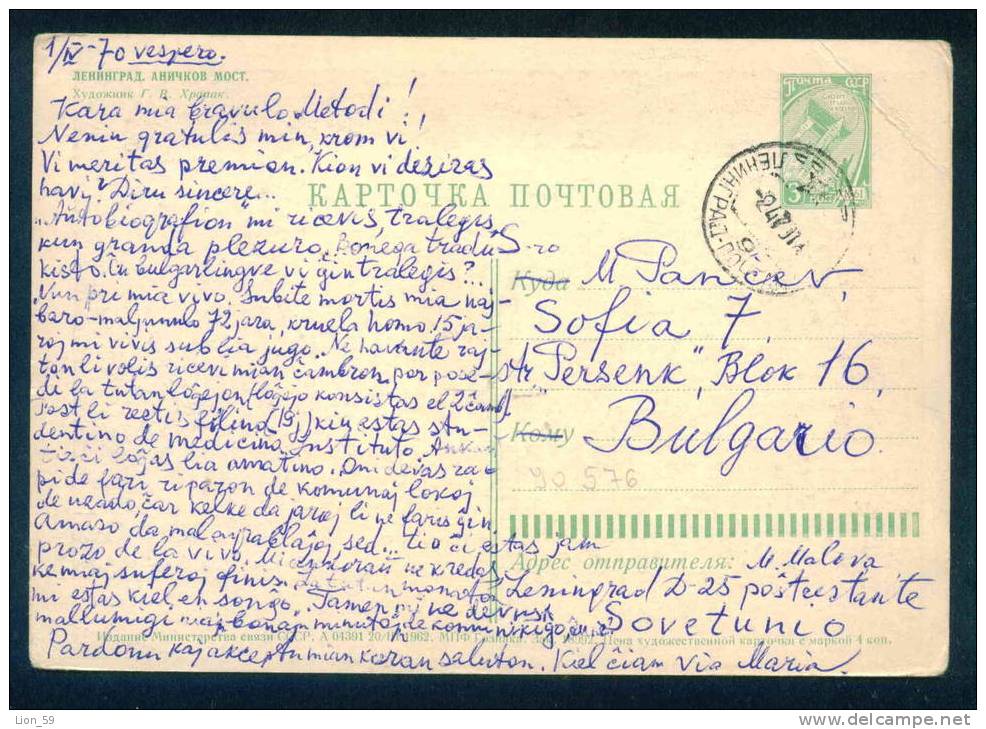 1/IV-70 vespero.
ЛЕНИНГРАД. АНИЧКОВ МОСТ.
Художник Г. В. Храпак.
Kara mia bravulo Metodi!!!
Nenin gratulis min, krom vi
Vi meritas premion. Kion vi deziras
havi? Diru sincere...
КАРТОЧКА ПОЧТОВАЯ
ПОЧТА СССР
"Autobiografion" mi ricevis, tralegis,
kun granda plezuro. Bonega tradu-
kisto. Ĉu bulgarlingve vi ĝin tralegis?..
Nun pri mia vivo. Subite mortis mia naj-
baro-maljunulo 72 jara, kruela homo. 15 ja-
roj mi vivis sub lia jugo. Ne havante raj-
ton li volis ricevi mian ĉambron, por posé-
di la tutan loĝejon (loĝejo konsistas el 2 ĉamb.)
Post li restis filino (19 j) kiu estas stu-
dentino de medicina instituto. Ankaŭ
tie ĉi loĝas lia amatino. Oni devas ra-
pide fari riparon de komunaj lokoj
de neado, ĉar kelke da jaroj li ne faris ĝin.
Amaso da malagrablaĵoj sed... tio ĉi estas jam
prozo de la vivo. Mi ankoraŭ ne kredas
ke miaj suferoj finis. La tutan monaton
mi estas kiel en sonĝo. Tamen mi ne devus
mallumigi viajn bonajn minutojn de komunikiĝo
Pardonu kaj akceptu mian karan saluton. Kiel ĉiam via Maria.
S-ro
Куда M Panev,
Sofia 7,
str. "Persenk", Blok 16,
Кому Bulgario.
90 576
Адрес отправителя: M. Malova
Leningrad D-25 poŝterestante
Sovetunio
Издание Министерства связи СССР. А 04391 20/ 1962. МПФ Гознака. Зак. Цена художественной карточки с маркой 4 коп.
Lion_59